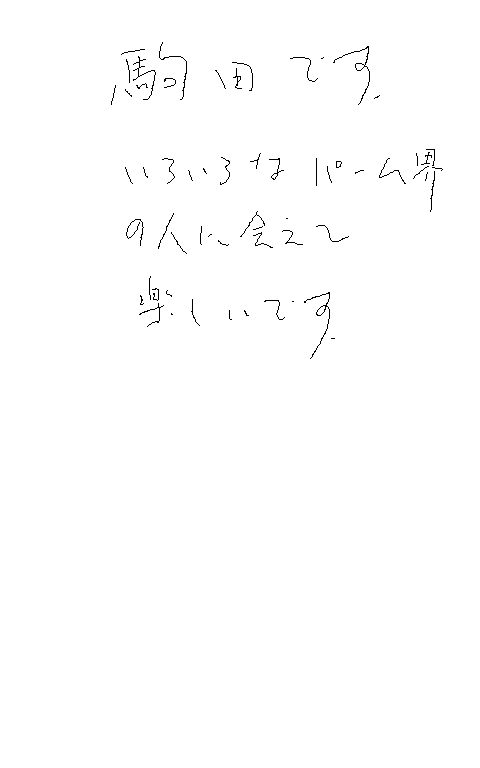 駒田です.
いろいろなパーム界
の人に会えて
楽しいです.